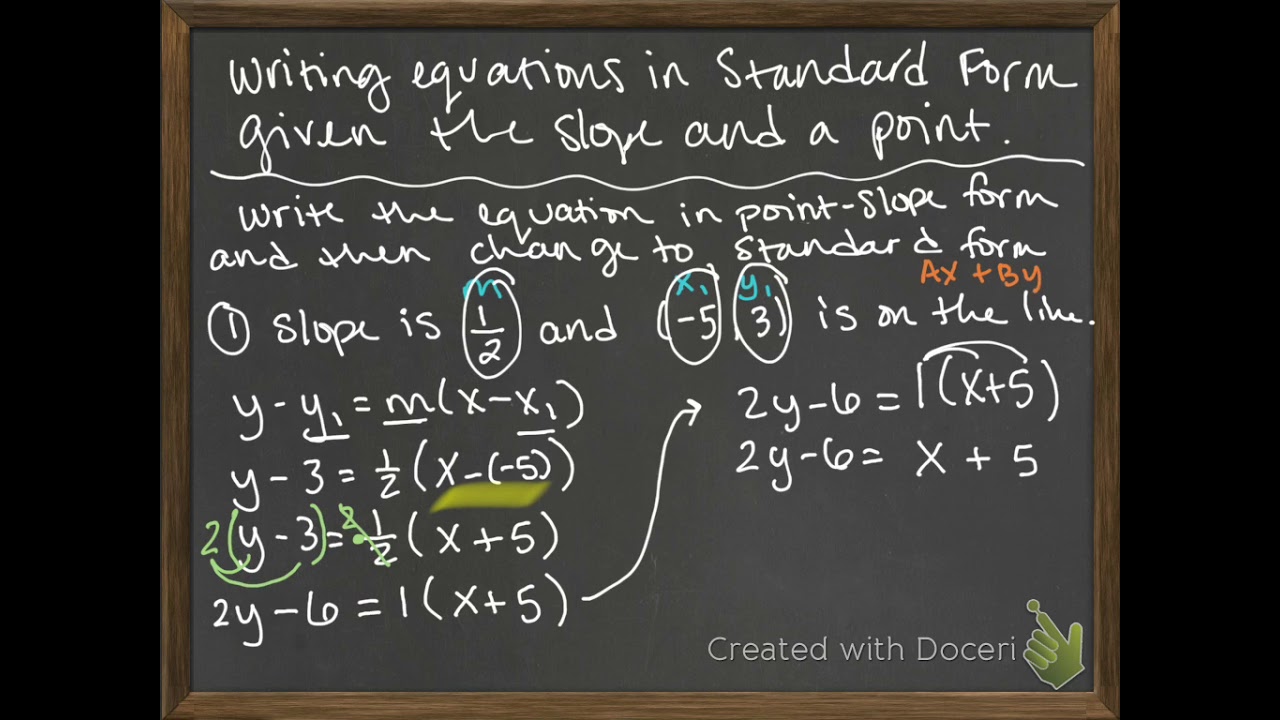 Writing equations in Standard Form
given the slope and a point.
Write the equation in point-slope form
and then change to standard form
Ax + By
m x₁ y₁
① Slope is 1/2 and (-5, 3) is on the line.
y - y₁ = m(x - x₁)
y - 3 = 1/2 (x - (-5))
2(y - 3) = 2 · 1/2 (x + 5)
2y - 6 = 1(x + 5)
2y - 6 = 1(x + 5)
2y - 6 = x + 5
Created with Doceri